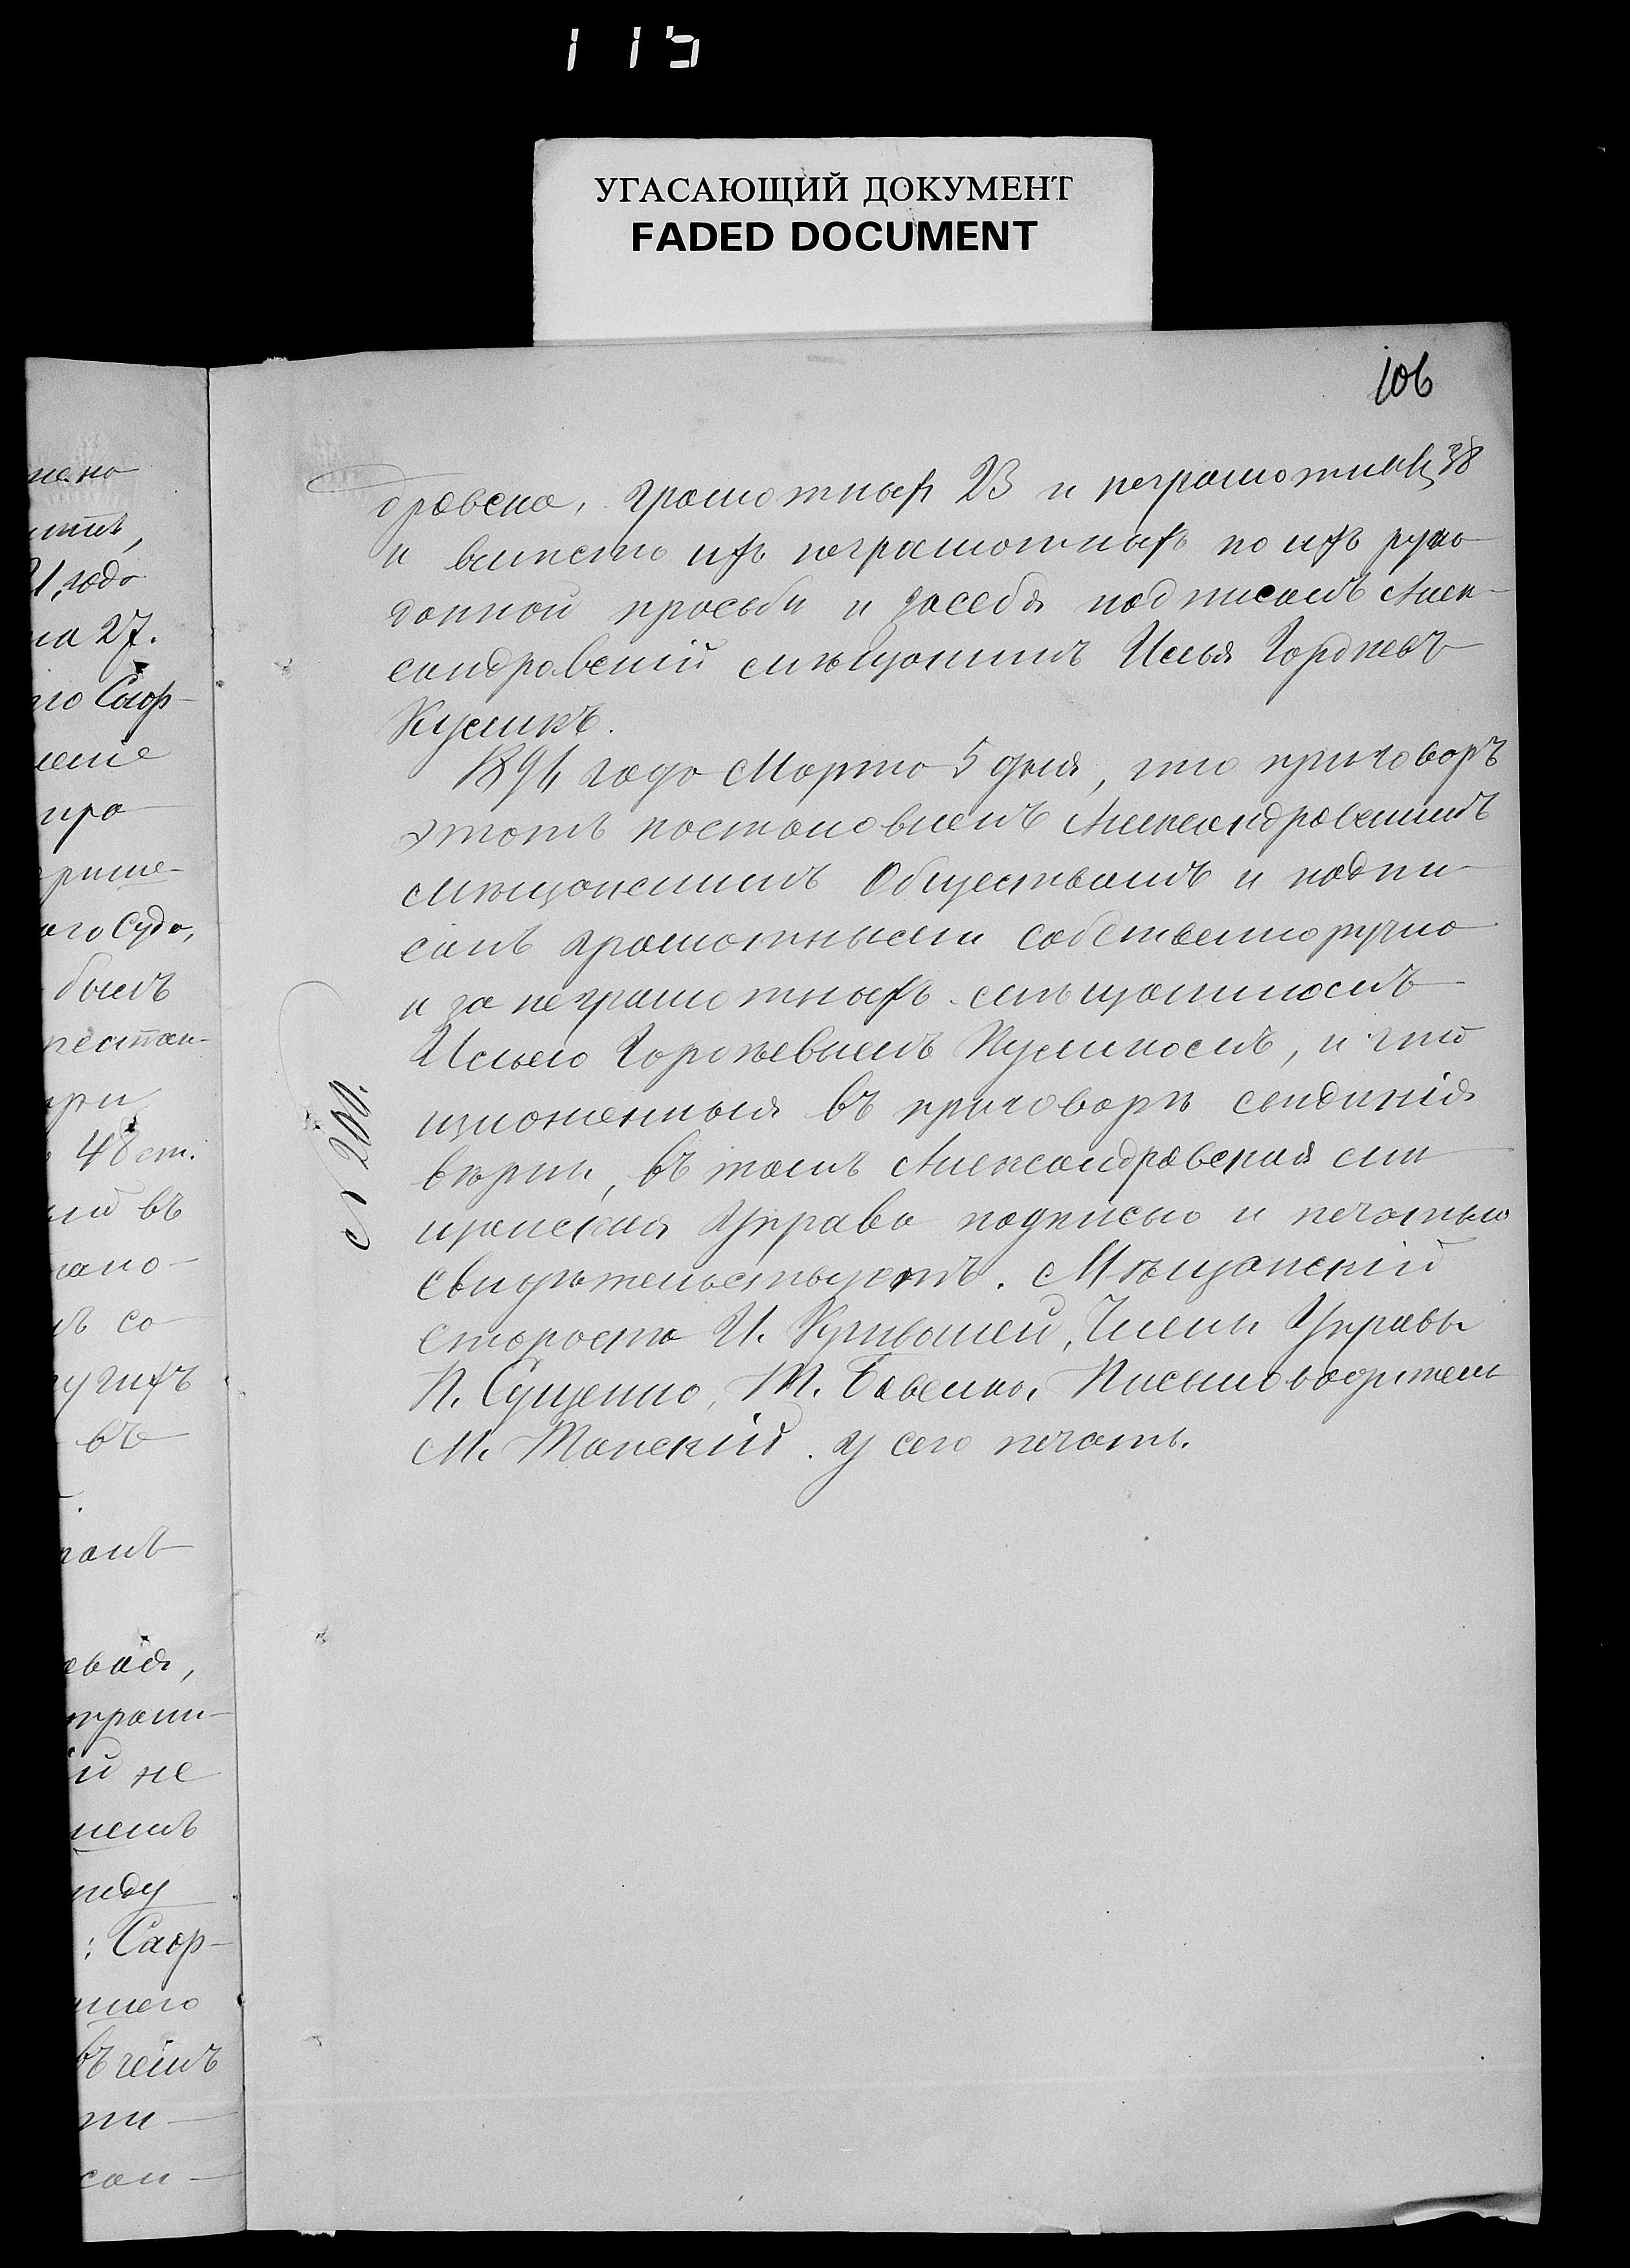 115
УГАСАЮЩИЙ ДОКУМЕНТ
FADED DOCUMENT
106
дровска, грамотныхъ 23 и неграмотныхъ 38
и вмѣсто ихъ неграмотныхъ по ихъ руко
данной просьби и засебя подписалъ Алек-
сандровскій мѣщанинъ Илья Гордѣевъ
Кусликъ.
1891 года Марта 5 дня, что приговоръ
этотъ постановленъ Александровскимъ
мѣщанскимъ Обществомъ и подпи
санъ грамотными собственноручно
и за неграмотныхъ мѣщаниномъ
Ильею Гордѣевымъ Кусликомъ, и что
изложенныя въ приговорѣ свидѣнія
вѣрны, въ томъ Александровская мѣ
щанская Управа подписью и печатью
свидѣтельствуетъ. Мѣщанскій
Староста И. Кривошей, Члены Управы
П. Сущенко, Т. Бавенко, Письмоводитель
М. Танскій. У сего печать.
№ 200.
мѣна
21, года
на 27.
го Саф-
леніе
про
рише-
аго Суда,
былъ
рестан-
при
48 ст.
ый въ
въ
ъ со
другихъ
евая,
й не
: Саф-
въ чемъ
сан-